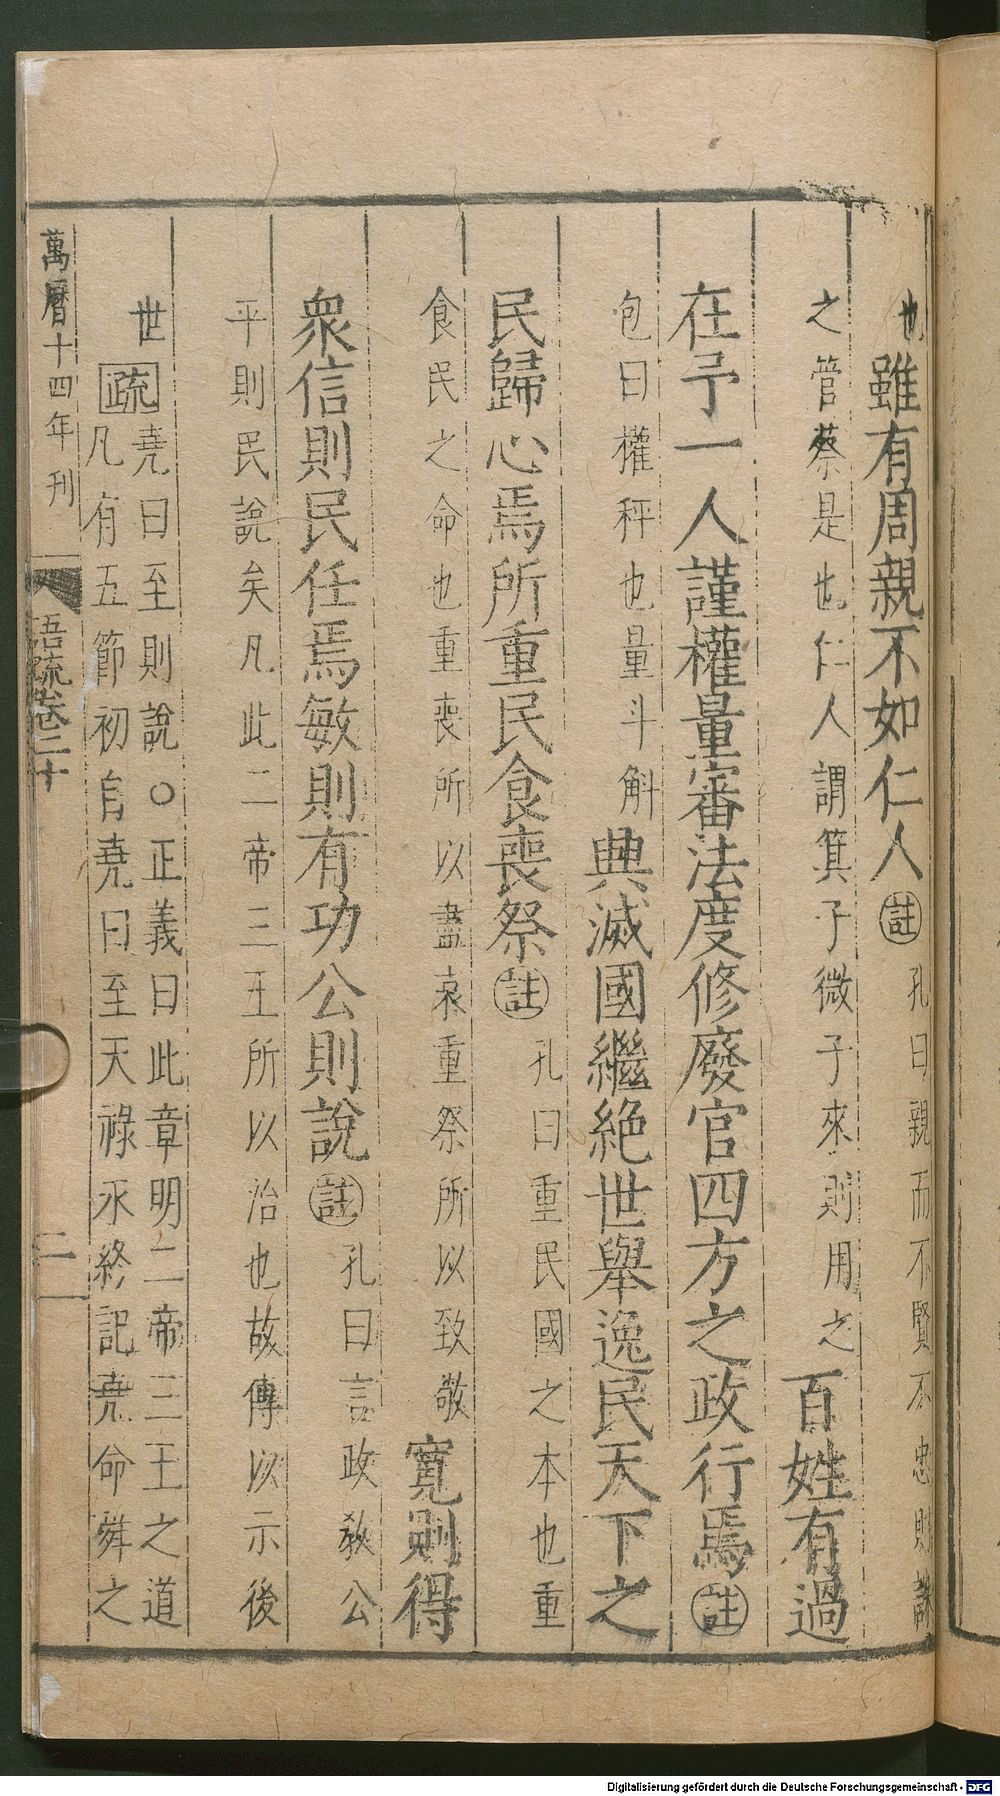 也雖有周親不如仁人註孔曰親而不賢不忠則誅
之管蔡是也仁人謂箕子微子來則用之百姓有過
在予一人謹權量審法度修廢官四方之政行焉註
包曰權秤也量斗斛興滅國繼絕世舉逸民天下之
民歸心焉所重民食喪祭註孔曰重民國之本也重
食民之命也重喪所以盡哀重祭所以致敬寬則得
眾信則民任焉敏則有功公則說註孔曰言政教公
平則民說矣凡此二帝三王所以治也故傳以示後
世疏堯曰至則說○正義曰此章明二帝三王之道
凡有五節初自堯曰至天祿永終記堯命舜之
萬曆十四年刊
語疏卷二十
二
Digitalisierung gefördert durch die Deutsche Forschungsgemeinschaft - DFG